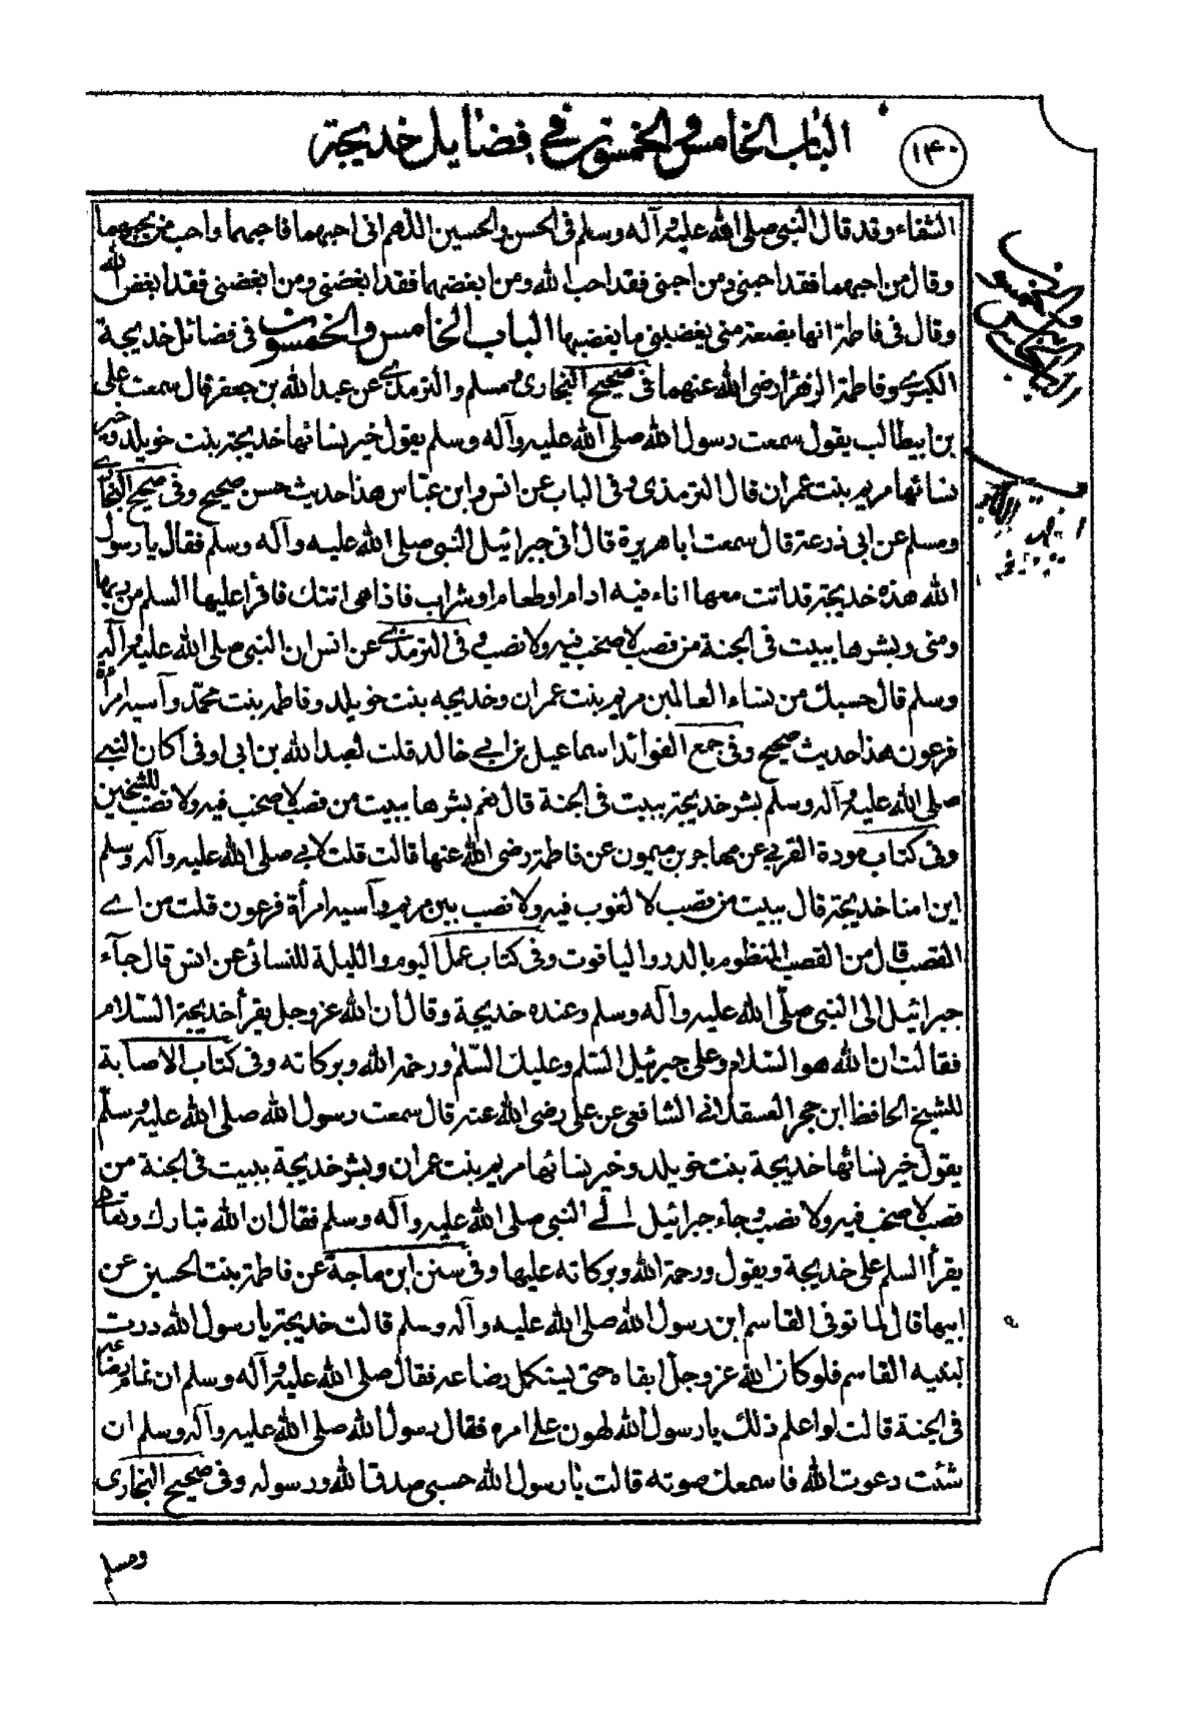 الباب الخامس والخمسون في فضايل خديجة
١٤٠
الشفاء وقد قال النبي صلى الله عليه وآله وسلم في الحسن والحسين اللهم اني احبهما فاحبهما واحب من يحبهما
وقال من احبهما فقد احبني ومن احبني فقد احب الله ومن ابغضهما فقد ابغضني ومن ابغضني فقد ابغض الله
وقال في فاطمة انها بضعة مني يغضبني ما يغضبها الباب الخامس والخمسون في فضائل خديجة
الكبرى وفاطمة الزهرا رضي الله عنهما في صحيح البخاري ومسلم والترمذي عن عبد الله بن جعفر قال سمعت علي
بن ابيطالب يقول سمعت رسول الله صلى الله عليه وآله وسلم يقول خير نسائها خديجة بنت خويلد وخير
نسائها مريم بنت عمران قال الترمذى وفى الباب عن انس وابن عباس هذا حديث حسن صحيح وفى صحيح البخاري
ومسلم عن ابى ذرعة قال سمعت ابا هريرة قال اتى جبرائيل النبي صلى الله عليه وآله وسلم فقال يا رسول
الله هذه خديجة قد اتت معها اناء فيه ادام او طعام او شراب فاذا هى اتتك فاقرأ عليها السلم من ربها
ومنى وبشرها ببيت فى الجنة من قصب لا صخب فيه ولا نصب وفى الترمذي عن انس ان النبي صلى الله عليه وآله
وسلم قال حسبك من نساء العالمين مريم بنت عمران وخديجه بنت خويلد وفاطمه بنت محمد وآسيه امرأة
فرعون هذا حديث صحيح وفى جمع الفوائد اسماعيل بن ابي خالد قلت لعبد الله بن ابى اوفى أكان النبي
صلى الله عليه وآله وسلم بشر خديجة ببيت فى الجنة قال نعم بشرها ببيت من قصب لا صخب فيه ولا نصب للشيخين
وفى كتاب مودة القربي عن مهاجر بن ميمون عن فاطمة رضي الله عنها قالت قلت لابي صلى الله عليه وآله وسلم
اين امنا خديجة قال ببيت من قصب لا لغوب فيه ولا نصب بين مريم وآسيه امرأة فرعون قلت من اي
القصب قال من القصب المنظوم بالدر والياقوت وفى كتاب عمل اليوم والليلة للنسائى عن انس قال جآء
جبرائيل الى النبي صلى الله عليه وآله وسلم وعنده خديجة وقال أن الله عز وجل يقرأ خديجة السلام
فقالت ان الله هو السلام وعلى جبرئيل السلم وعليك السلم ورحمة الله وبركاته وفى كتاب الاصابة
للشيخ الحافظ ابن حجر العسقلاني الشافعي عن على رضي الله عنه قال سمعت رسول الله صلى الله عليه وسلم
يقول خير نسائها خديجة بنت خويلد وخير نسائها مريم بنت عمران وبشر خديجة ببيت فى الجنة من
قصب لا صخب فيه ولا نصب وجاء جبرائيل الي النبي صلى الله عليه وآله وسلم فقال ان الله تبارك وتعالى
يقرأ السلم على خديجة ويقول ورحمة الله وبركاته عليها وفى سنن ابن ماجة عن فاطمة بنت الحسين عن
ابيها قال لما توفى القاسم ابن رسول الله صلى الله عليه وآله وسلم قالت خديجة يا رسول الله درت
لبنيه القاسم فلو كان الله عز وجل ابقاه حتى يستكمل رضاعه فقال صلى الله عليه وآله وسلم ان تمام رضاعه
فى الجنة قالت لو اعلم ذلك يا رسول الله لهون علي امره فقال رسول الله صلى الله عليه وآله وسلم ان
شئت دعوت الله فاسمعك صوته قالت يا رسول الله حسبي صدق الله ورسوله وفى صحيح البخارى
ومسلم